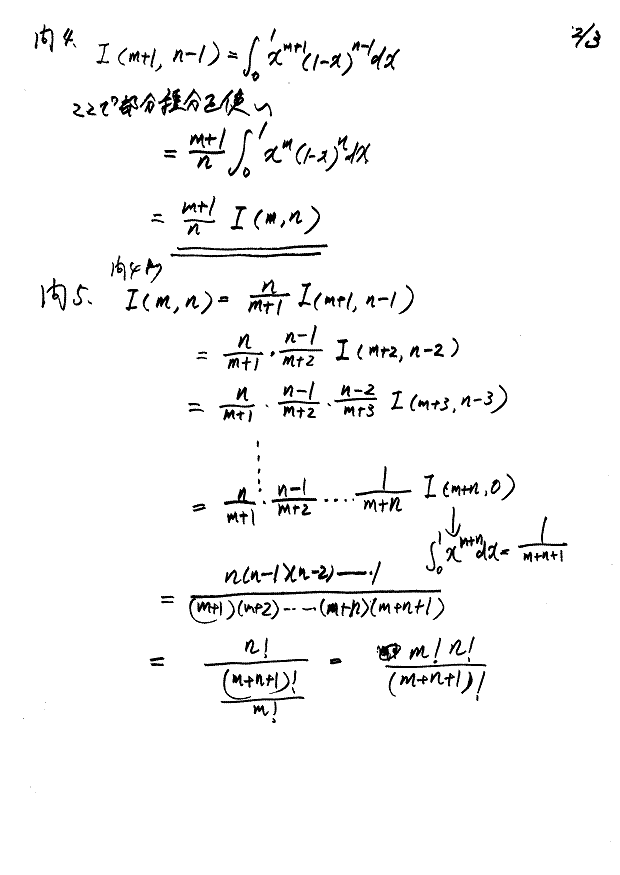 2/3
問4. I(m+1, n-1) = ∫₀¹ x^{m+1}(1-x)^{n-1}dx
ここで部分積分を使い
= \frac{m+1}{n} ∫₀¹ x^m (1-x)^n dx
= \frac{m+1}{n} I(m,n)
問4より
問5. I(m,n) = \frac{n}{m+1} I(m+1, n-1)
= \frac{n}{m+1} · \frac{n-1}{m+2} I(m+2, n-2)
= \frac{n}{m+1} · \frac{n-1}{m+2} · \frac{n-2}{m+3} I(m+3, n-3)
= \frac{n}{m+1} · \frac{n-1}{m+2} ···· \frac{1}{m+n} I(m+n, 0)
↓
∫₀¹ x^{m+n} dx = \frac{1}{m+n+1}
= \frac{n(n-1)(n-2)―·1}{(m+1)(m+2)·····(m+n)(m+n+1)}
= \frac{n!}{\frac{(m+n+1)!}{m!}} = \frac{m! n!}{(m+n+1)!}